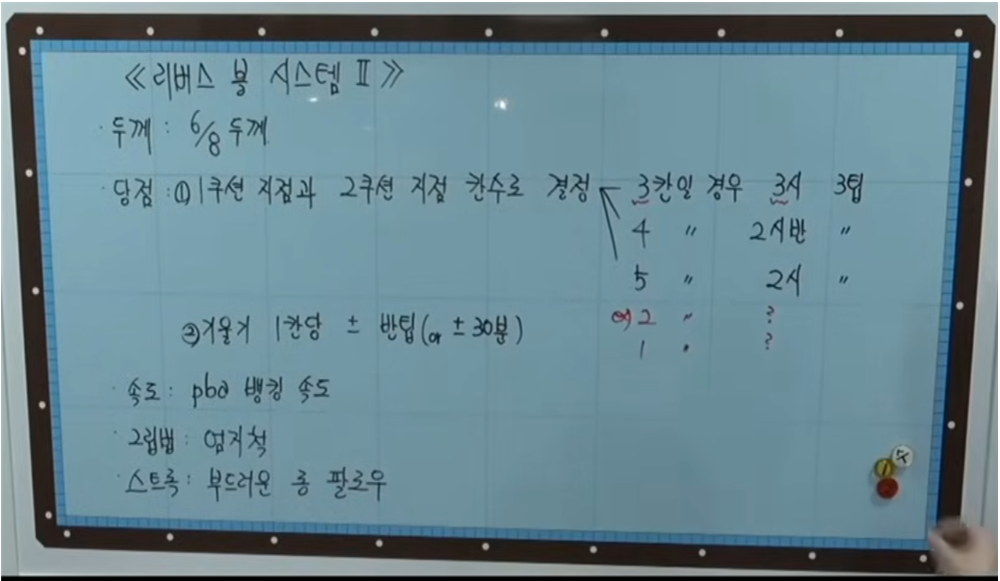 ≪리버스 볼 시스템 Ⅱ≫
· 두께 : 6/8 두께
· 당점 : ① 1쿠션 지점과 2쿠션 지점 칸수로 결정 3칸일 경우 3시 3팁
4 〃 2시반 〃
5 〃 2시 〃
예) 2 〃 ?
1 〃 ?
② 기울기 1칸당 ± 반팁(or ± 30분)
· 속도 : pba 뱅킹 속도
· 그립법 : 엄지척
· 스트록 : 부드러운 롱 팔로우